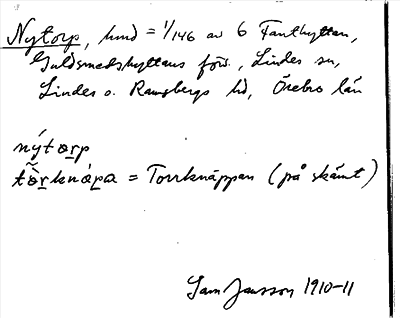 Nytorp, hmd = 1/146 av 6 Fanthyttan,
Guldsmedshyttans förs., Lindes sn,
Lindes o. Ramsbergs hd, Örebro län
nýtorp
= Torrknäppan (på skämt)
Sam Jansson 1910-11